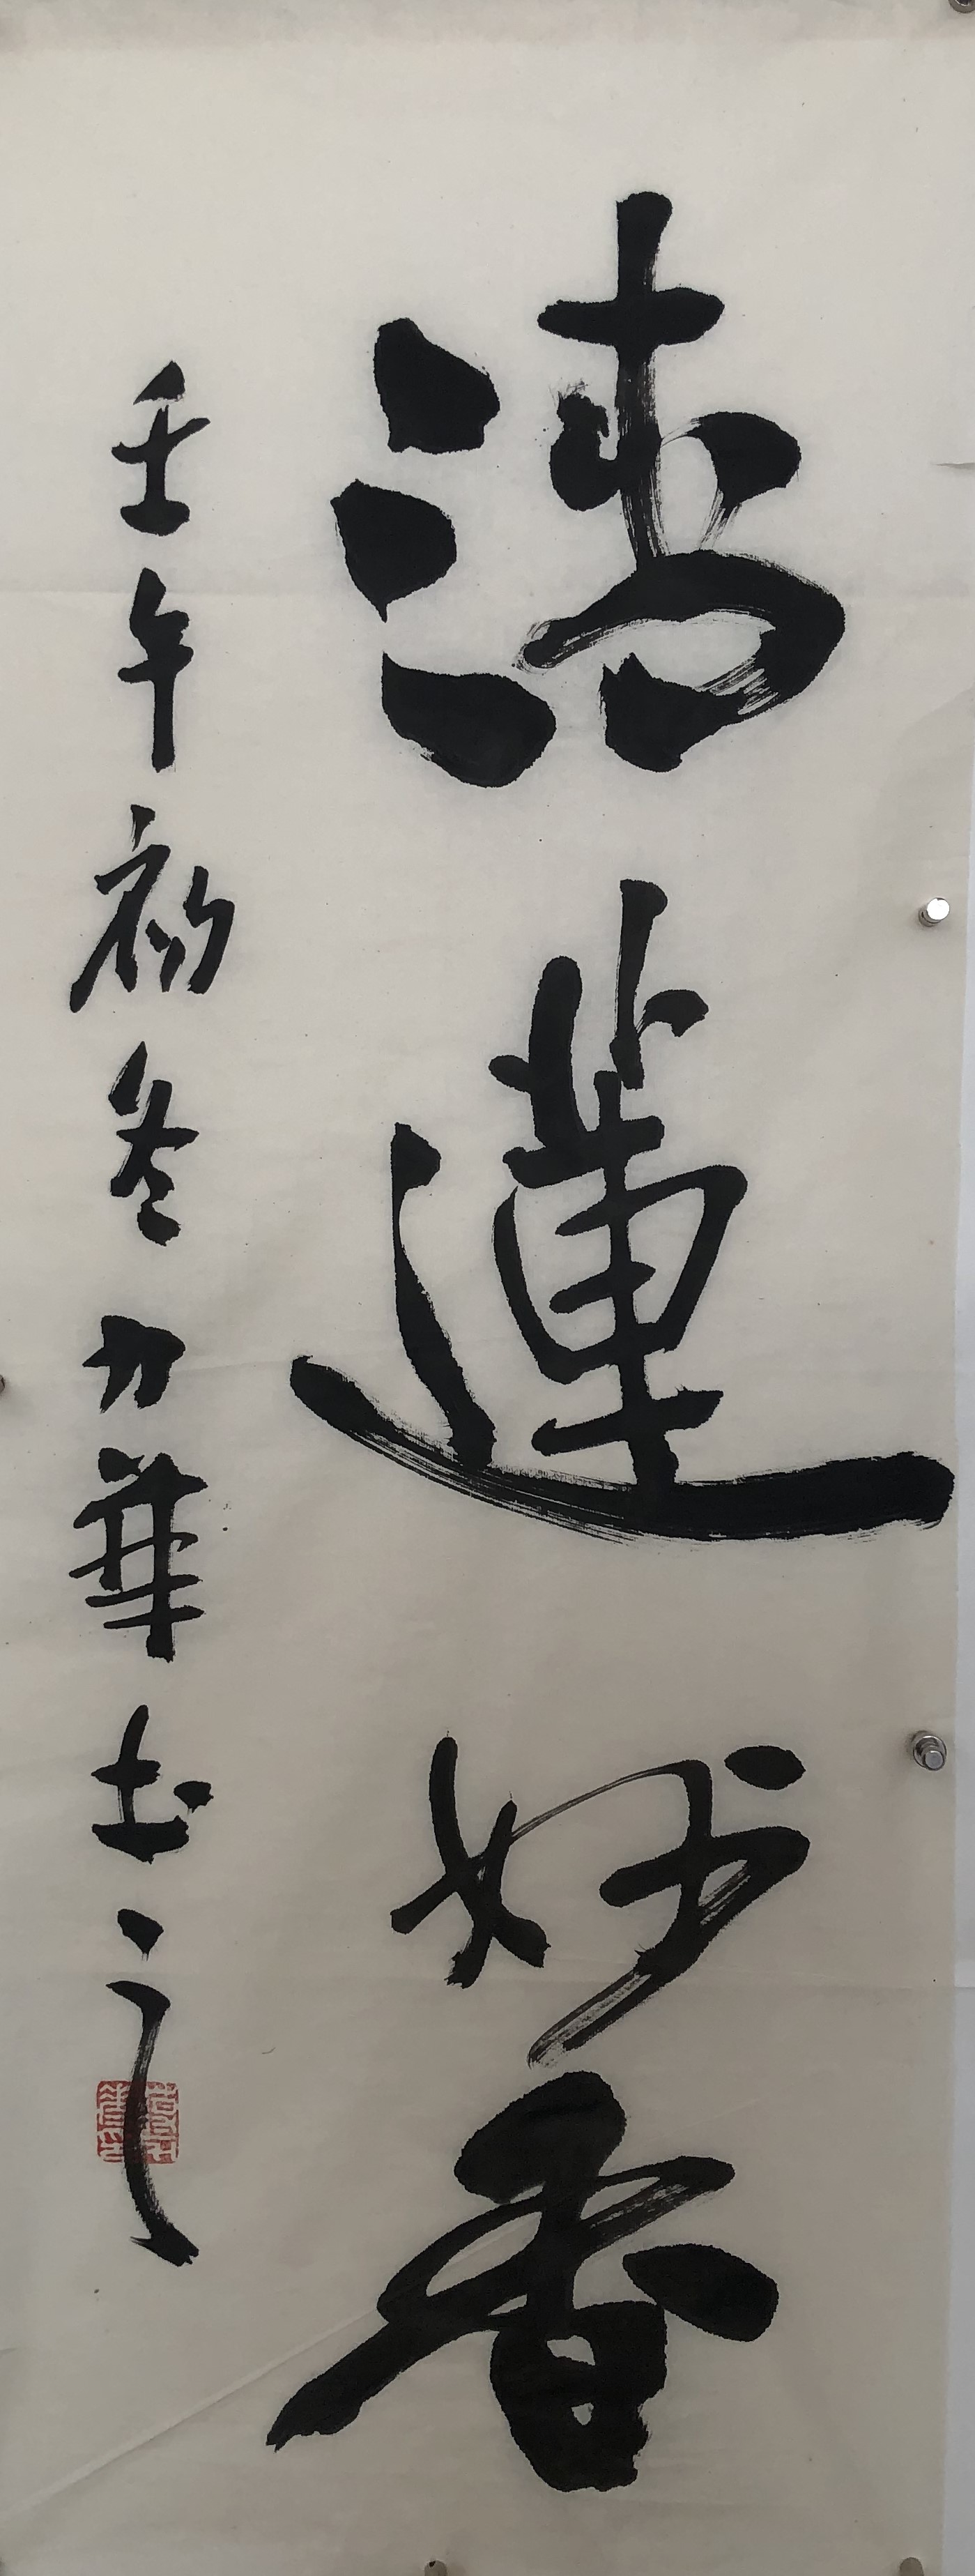 清蓮妙香
壬午初冬力華书之